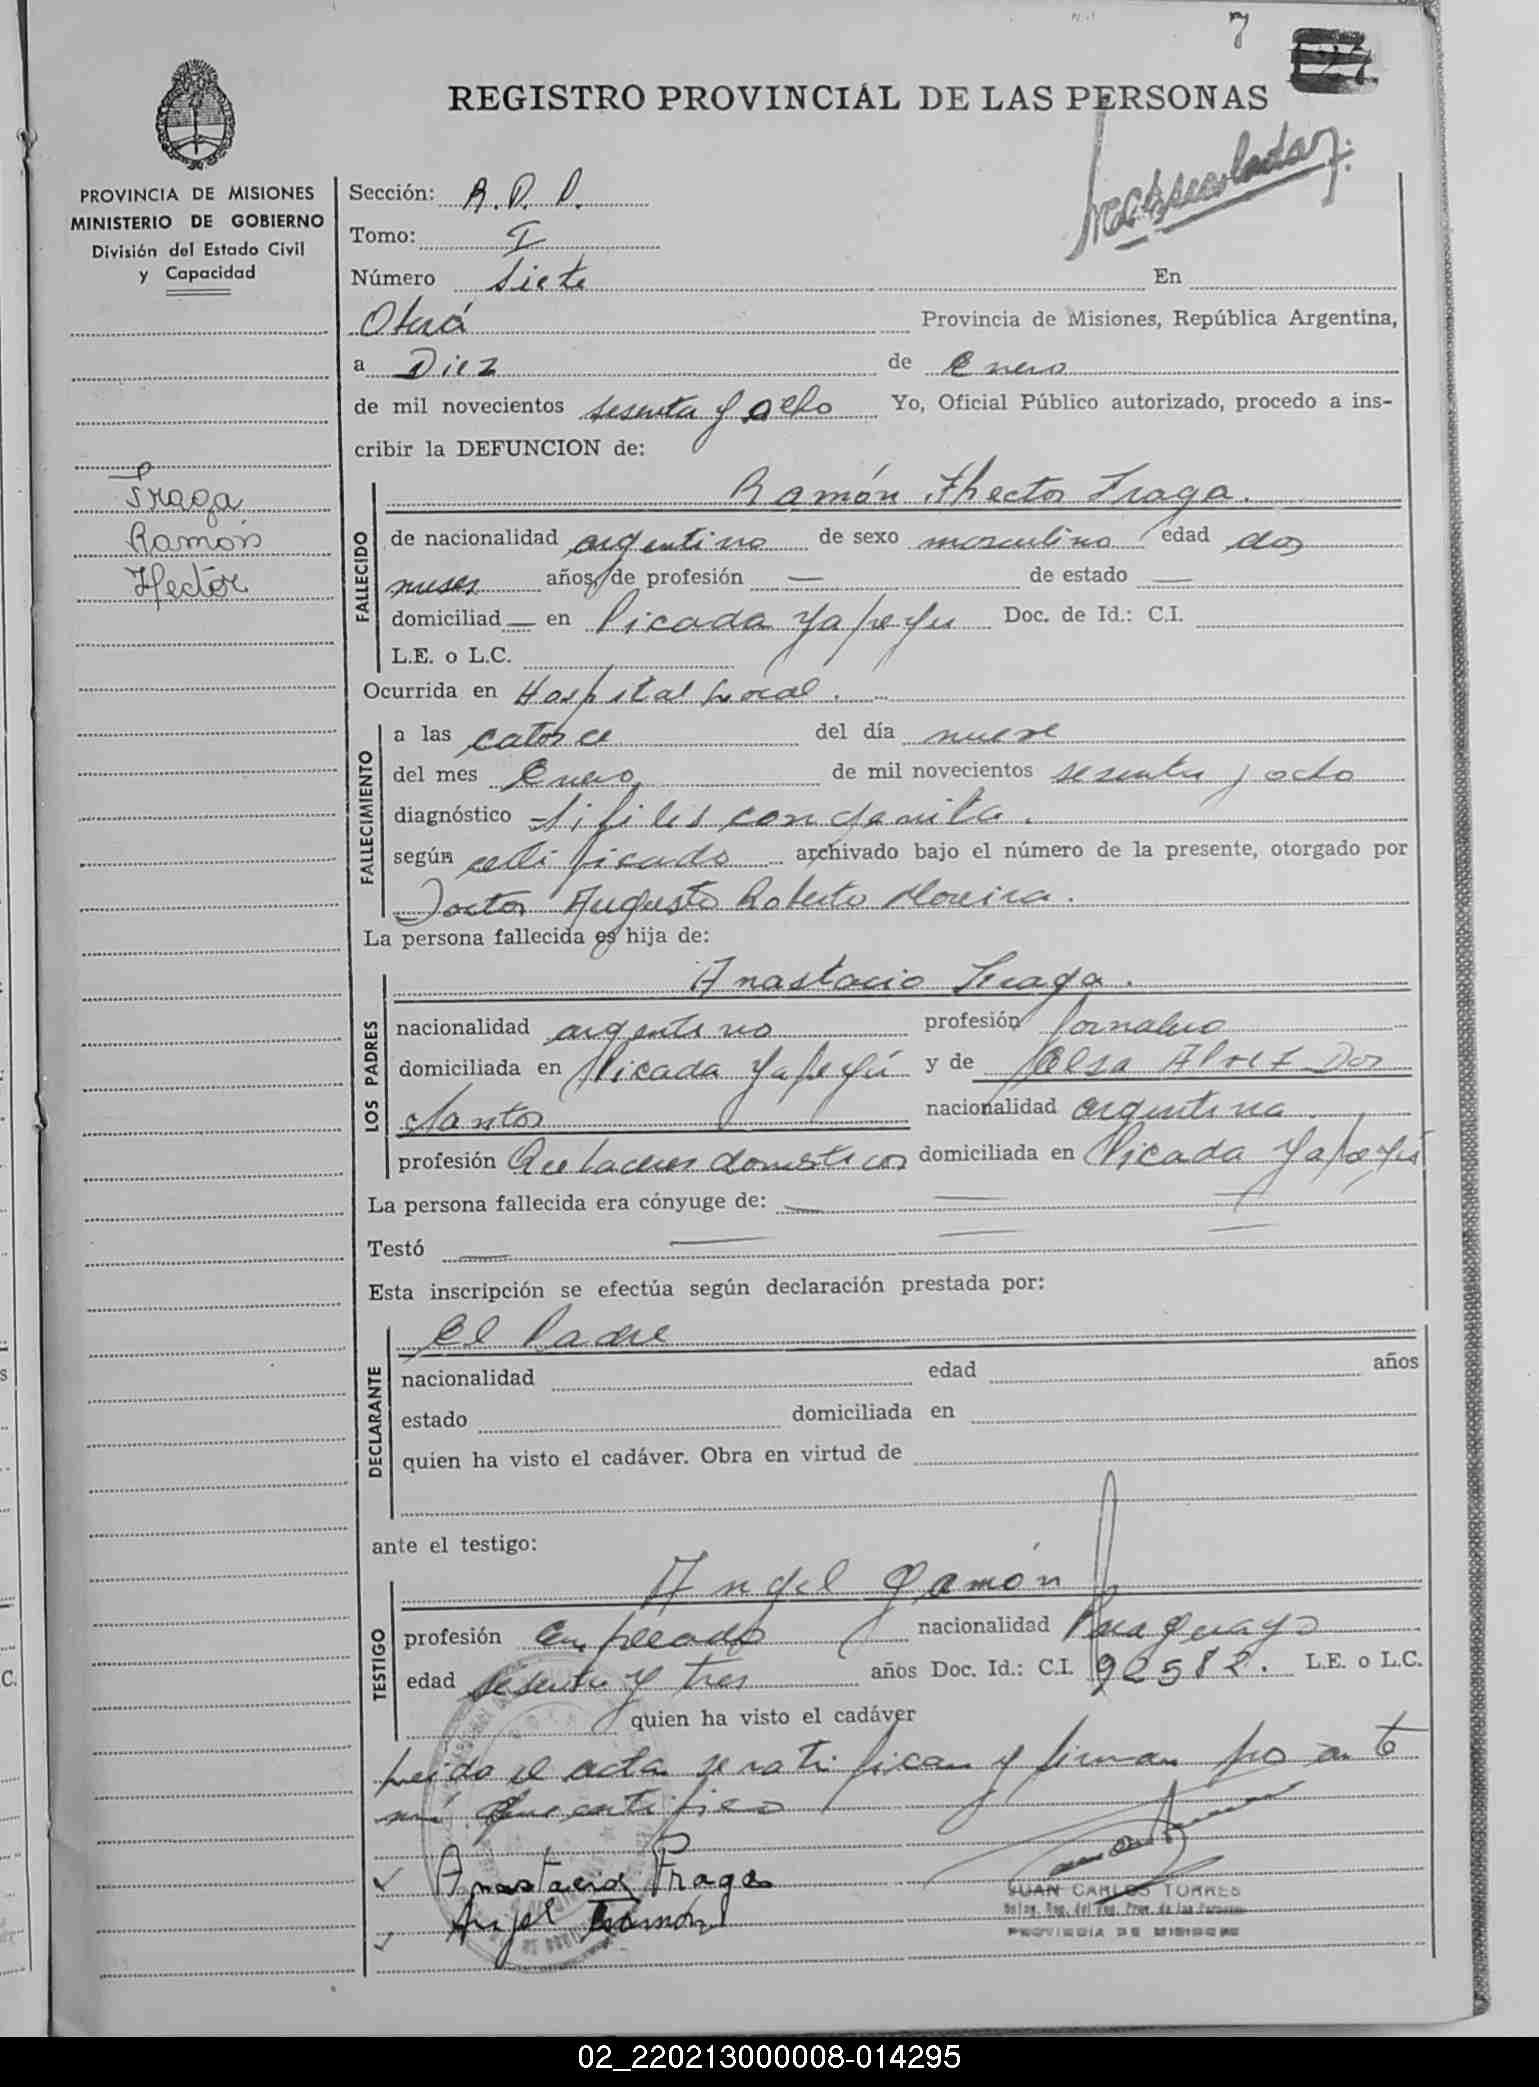 7
REGISTRO PROVINCIAL DE LAS PERSONAS
PROVINCIA DE MISIONES
MINISTERIO DE GOBIERNO
División del Estado Civil
y Capacidad
Sección: R. D. D.
Tomo: I
Número Siete En
Oberá Provincia de Misiones, República Argentina,
a Diez de Enero
de mil novecientos sesenta y ocho Yo, Oficial Público autorizado, procedo a ins-
cribir la DEFUNCION de:
Fraga
Ramón
Hector
FALLECIDO
Ramón Hector Fraga.
de nacionalidad argentino de sexo masculino edad dos
meses años, de profesión — de estado —
domiciliad — en Picada Yapeyu Doc. de Id.: C.I.
L.E. o L.C.
Ocurrida en Hospital local.
FALLECIMIENTO
a las catorce del día nueve
del mes Enero de mil novecientos sesenta y ocho
diagnóstico Sifiles congenita.
según certificado archivado bajo el número de la presente, otorgado por
Doctor Augusto Roberto Moreira.
La persona fallecida es hija de:
LOS PADRES
Anastacio Fraga.
nacionalidad argentino profesión Jornalero
domiciliada en Picada Yapeyú y de Elsa Alvez Dos
Santos nacionalidad argentina
profesión Quehaceres domesticos domiciliada en Picada Yapeyú
La persona fallecida era cónyuge de: —
Testó —
Esta inscripción se efectúa según declaración prestada por:
DECLARANTE
El Padre
nacionalidad edad años
estado domiciliada en
quien ha visto el cadáver. Obra en virtud de
ante el testigo:
TESTIGO
Angel Gamón
profesión Empleado nacionalidad Paraguayo
edad sesenta y tres años Doc. Id.: C.I. 92582. L.E. o L.C.
quien ha visto el cadáver
Leida el acta se ratifican y firman por ante
mi que certifico
Anastacio Fraga
Angel Gamón
JUAN CARLOS TORRES
PROVINCIA DE MISIONES
02_220213000008-014295